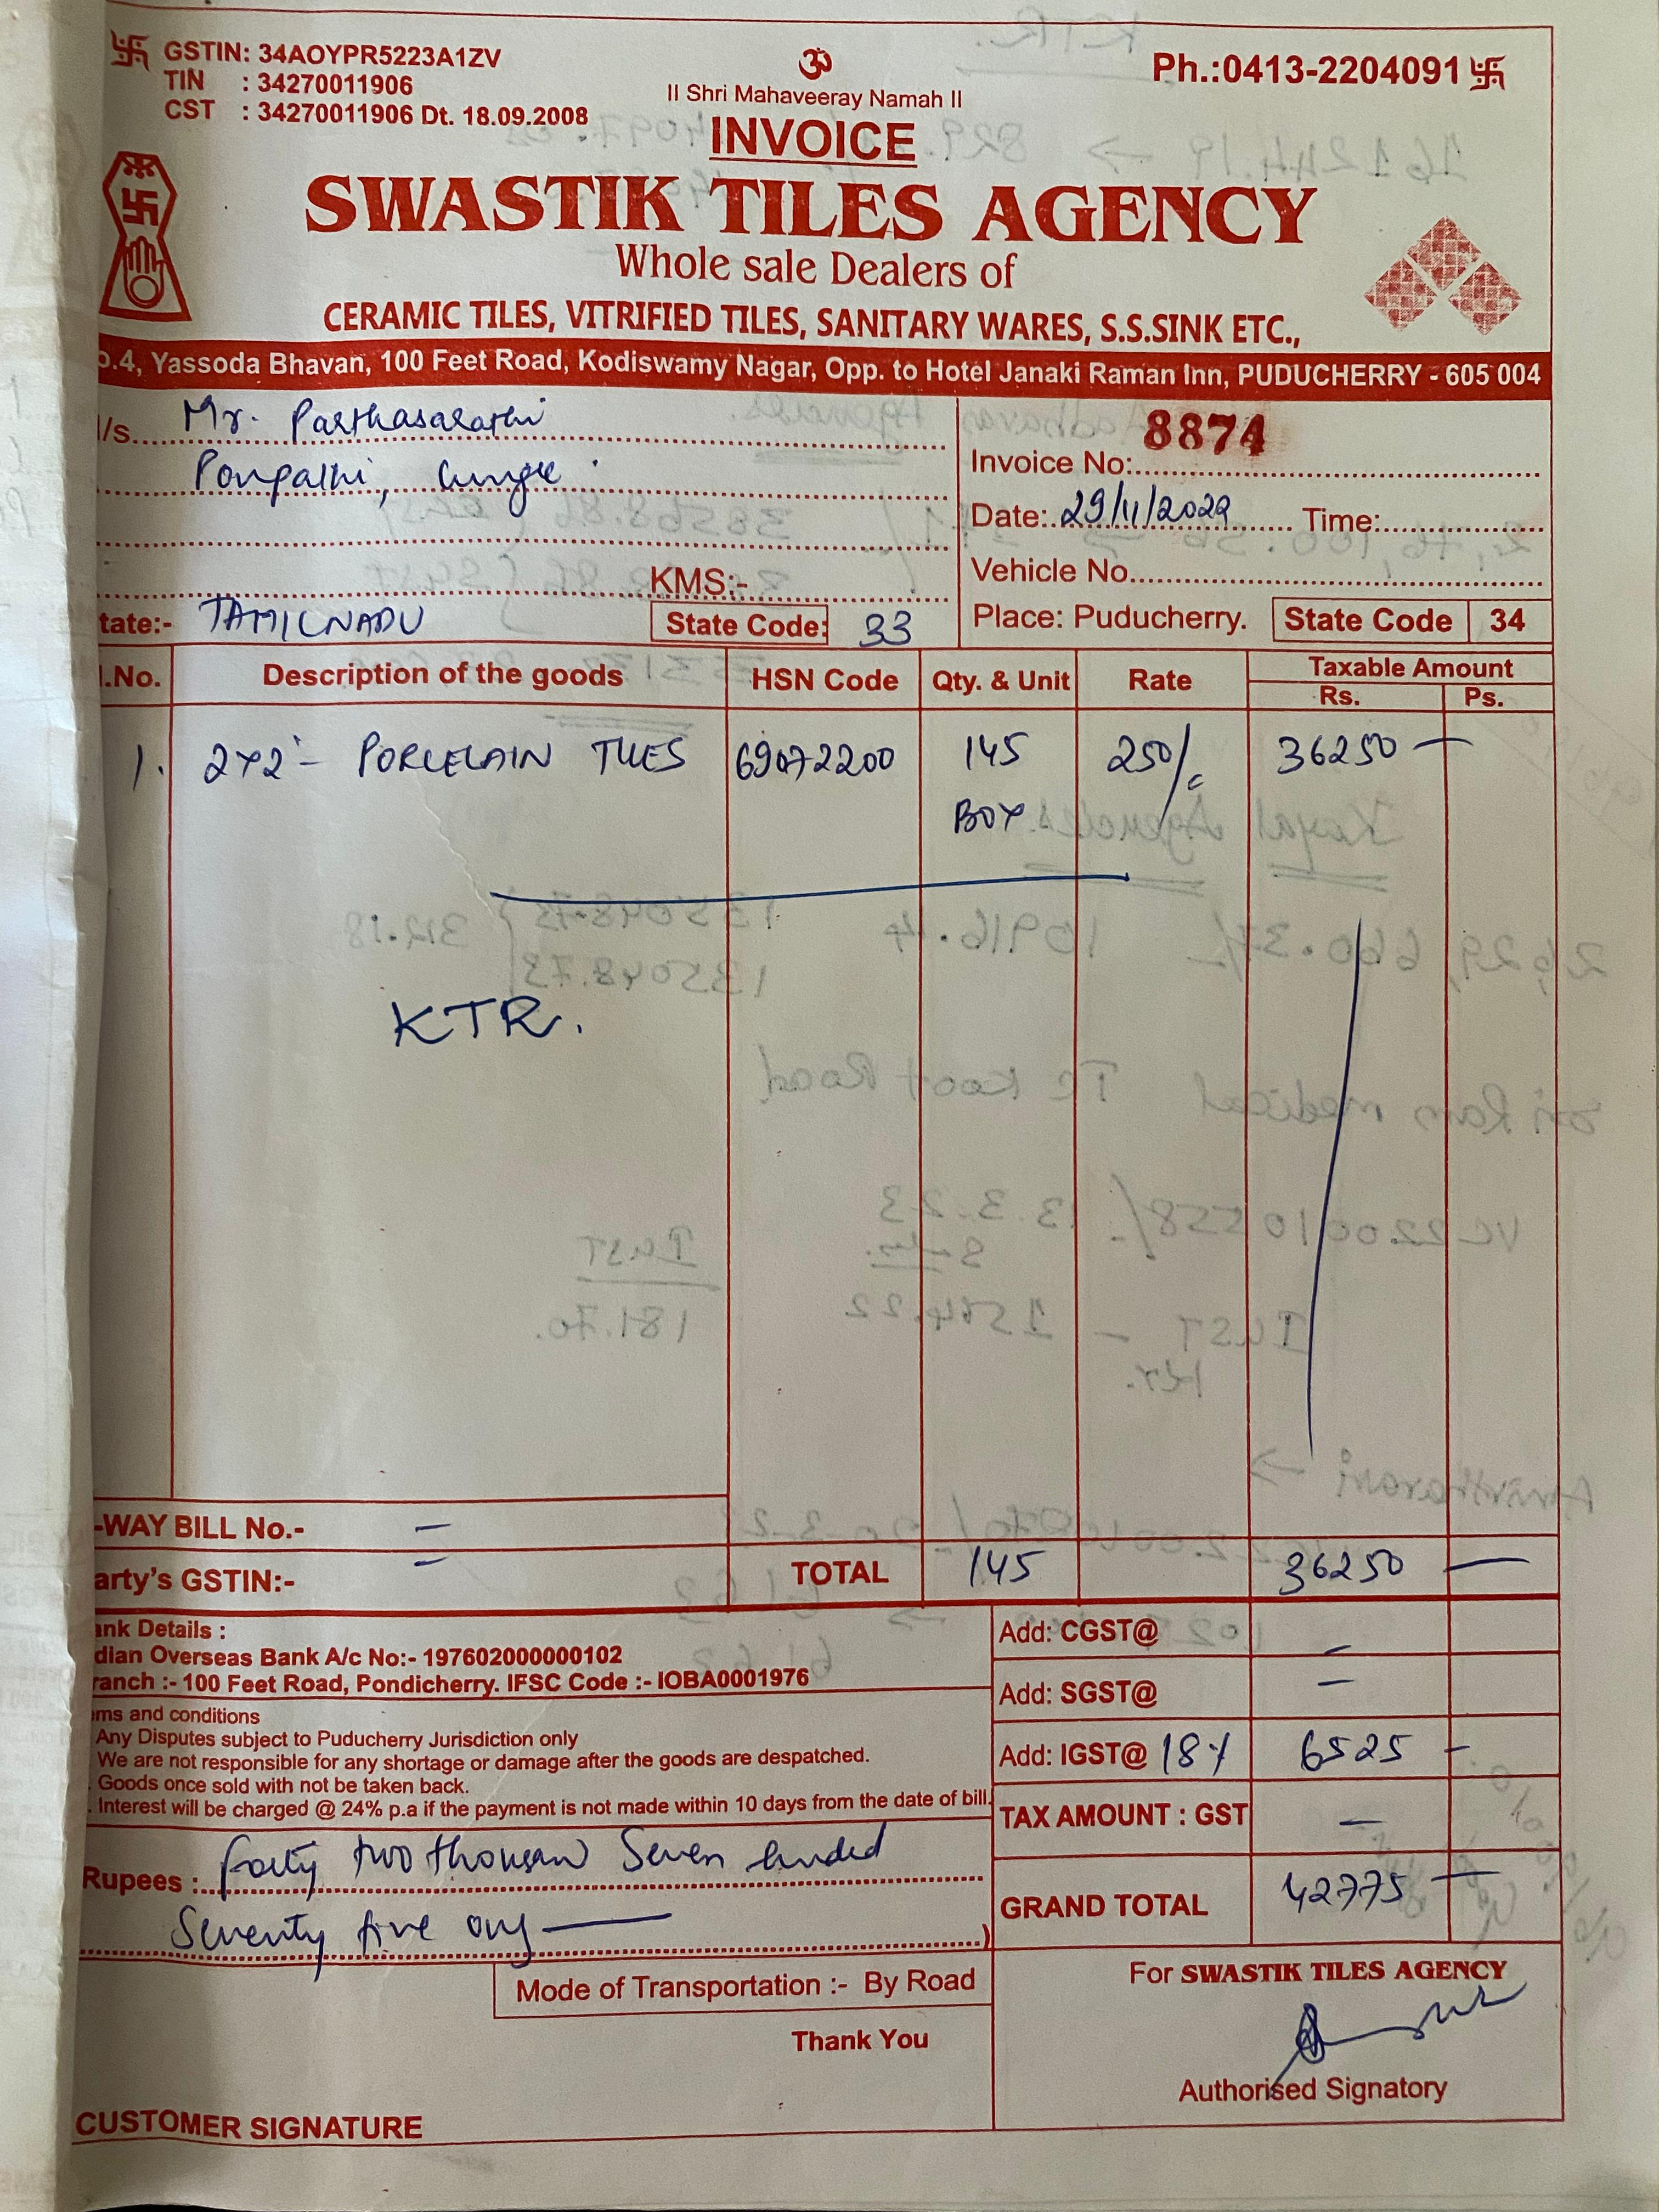 GSTIN: 34AOYPR5223A1ZV
TIN : 34270011906
CST : 34270011906 Dt. 18.09.2008
ॐ
II Shri Mahaveeray Namah II
Ph.:0413-2204091
INVOICE
SWASTIK TILES AGENCY
Whole sale Dealers of
CERAMIC TILES, VITRIFIED TILES, SANITARY WARES, S.S.SINK ETC.,
o.4, Yassoda Bhavan, 100 Feet Road, Kodiswamy Nagar, Opp. to Hotel Janaki Raman Inn, PUDUCHERRY - 605 004
/s. Mr. Parthasarathi
Invoice No: 8874
Date: 29/11/2022 Time:
KMS:-
Vehicle No.
tate:- TAMILNADU State Code: 33
Place: Puducherry. State Code 34
l.No. Description of the goods HSN Code Qty. & Unit Rate Taxable Amount
Rs. Ps.
1. 2x2'- PORCELAIN TILES 69072200 145 250/- 36250 —
BOX
KTR.
-WAY BILL No.- =
arty's GSTIN:- TOTAL 145 36250 —
ank Details :
dian Overseas Bank A/c No:- 197602000000102
ranch :- 100 Feet Road, Pondicherry. IFSC Code :- IOBA0001976
ms and conditions
Any Disputes subject to Puducherry Jurisdiction only
We are not responsible for any shortage or damage after the goods are despatched.
. Goods once sold with not be taken back.
. Interest will be charged @ 24% p.a if the payment is not made within 10 days from the date of bill.
Add: CGST@ —
Add: SGST@ —
Add: IGST@ 18% 6525 —
TAX AMOUNT : GST —
GRAND TOTAL 42775 —
Rupees : forty two thousan Seven hunded
Seventy five ony —
)
Mode of Transportation :- By Road
Thank You
For SWASTIK TILES AGENCY
Authorised Signatory
CUSTOMER SIGNATURE